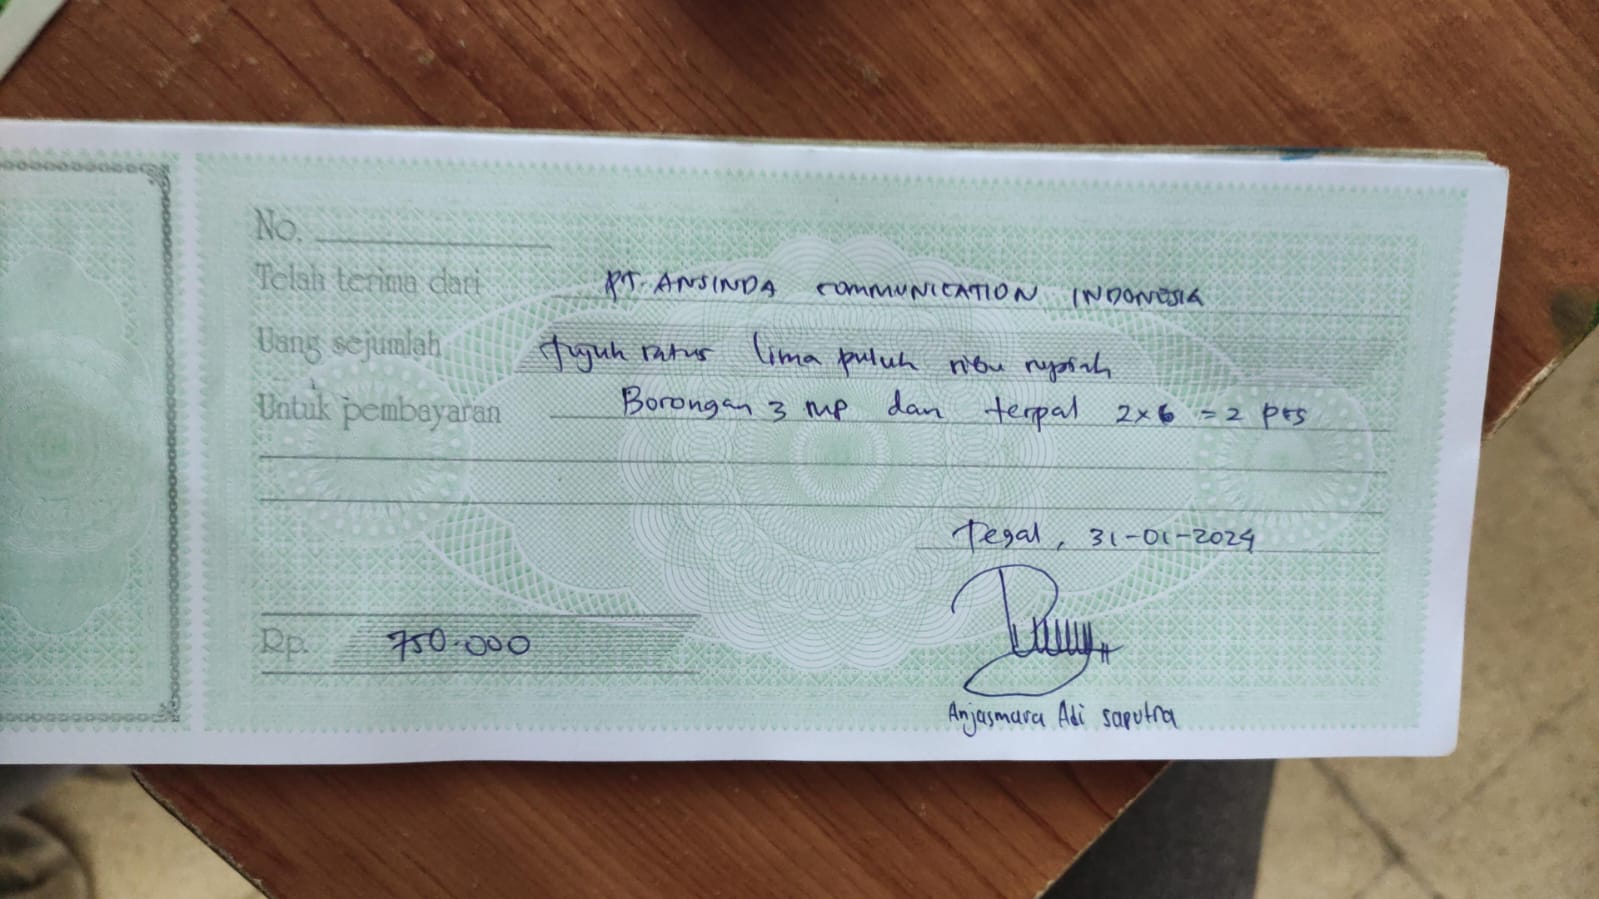 No.
Telah terima dari PT. ANSINDA COMMUNICATION INDONESIA
Uang sejumlah tujuh ratus lima puluh ribu rupiah
Untuk pembayaran Borongan 3 MP dan terpal 2x6 = 2 pcs
Tegal, 31-01-2024
Rp. 750.000
Anjasmara Adi saputra